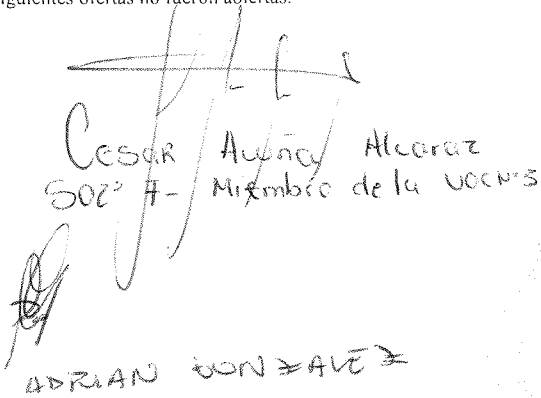 siguientes ofertas no fueron abiertas.
Cesar Acuña Alcaraz
Miembro de la UOC Nº3
ADRIAN GONZALEZ